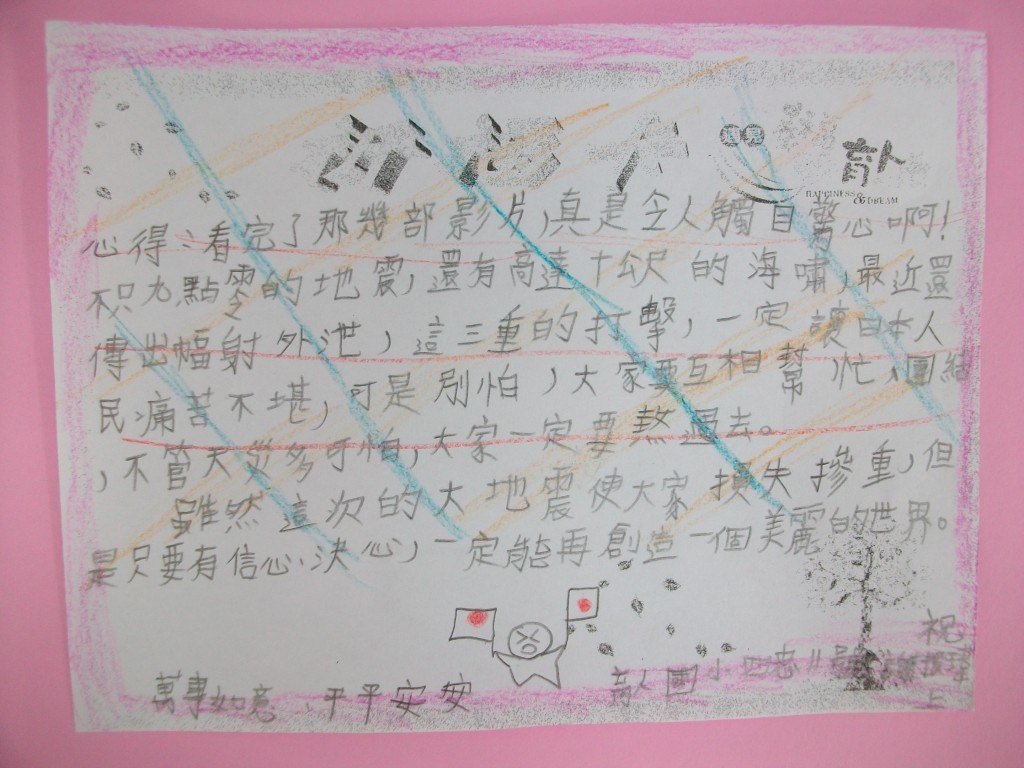 育人
HAPPINESS & DREAM
心得：看完了那幾部影片,真是令人觸目驚心啊!
不只九點零的地震,還有高達十公尺的海嘯,最近還
傳出幅射外泄,這三重的打擊,一定讓日本人
民痛苦不堪,可是別怕,大家要互相幫忙、團結
,不管天災多可怕,大家一定要熬過去。
雖然這次的大地震使大家損失摻重,但
是只要有信心、決心,一定能再創造一個美麗的世界。
祝
萬事如意、平平安安
育人國小 四忠
上